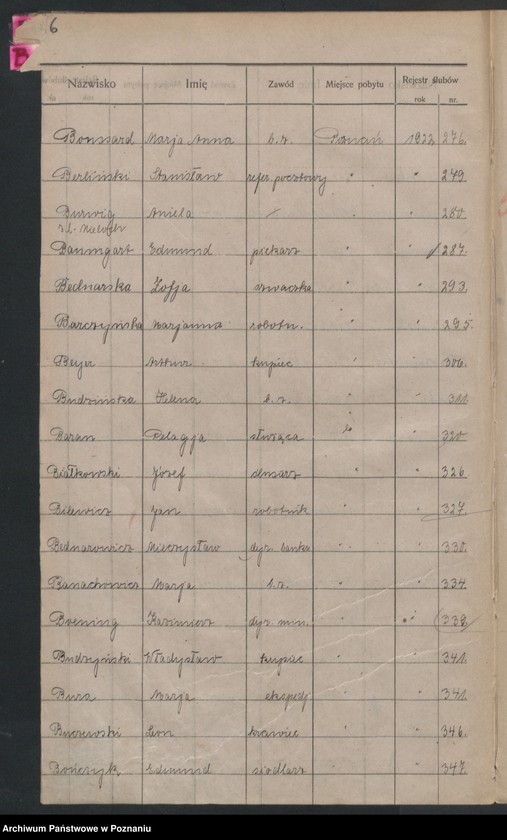 6
B
Nazwisko Imię Zawód Miejsce pobytu Rejestr ślubów
rok nr.
Bonssard Marja Anna b.z. Poznań 1922 276.
Berliński Stanisław refer. pocztowy " " 279
Burwig Aniela / " " 280
z d.
Baumgart Edmund piekarz " " 287.
Bednarska Zofja szwaczka " " 293.
Barczyńska Marjanna robotn. " " 295.
Beyer Artur kupiec " " 306.
Budzińska Helena b.z. " " 311.
Baran Pelagja służąca " " 320
Białkowski Józef ślusarz " " 326
Bilewicz Jan robotnik " " 327.
Bednarowicz Mieczysław dyr. banku " " 330.
Banachowicz Marja b.z. " " 334.
Boening Kazimierz dyr. min. " " 338
Budzyński Władysław kupiec " " 341.
Bura Marja ekspedj. " " 341
Byczewski Leon krawiec " " 346.
Bończyk Edmund siodlarz " " 347.
Archiwum Państwowe w Poznaniu